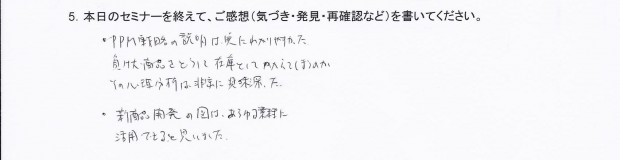 5. 本日のセミナーを終えて、ご感想(気づき・発見・再確認など)を書いてください。
・PPM戦略の説明は実にわかりやすかった
負け犬商品をどうして在庫としてかかえてしまうのか
その心理分析は非常に興味深った。
・新商品開発の図は、あらゆる業種に
活用できると思いました。